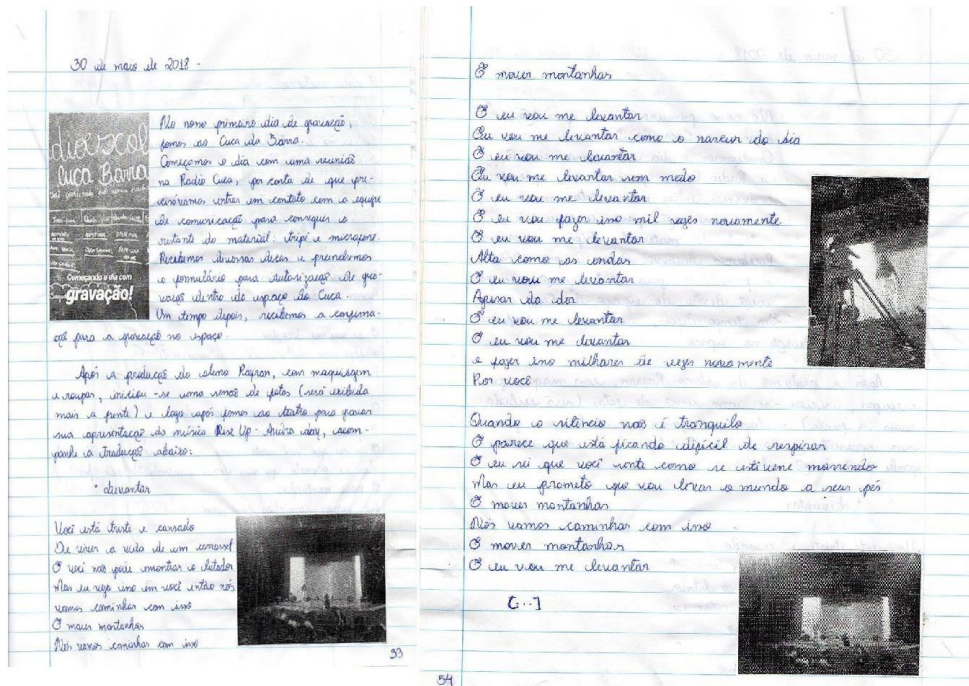 30 de maio de 2018 -
dioescol
Cuca Barra
Começando o dia com
gravação!
No nosso primeiro dia de gravação,
fomos ao Cuca da Barra.
Começamos o dia com uma reunião
na Rádio Cuca, por conta de que pre-
cisávamos entrar em contato com a equipe
de comunicação para conseguir o
restante do material: tripé e microfone.
Recebemos diversas dicas e preenchemos
o formulário para autorização de gra-
vação dentro do espaço do Cuca.
Um tempo depois, recebemos a confirma-
ção para a gravação no espaço.
Após a produção do aluno Rayran, com maquiagem
e roupas, iniciou-se uma sessão de fotos (será exibida
mais a frente) e logo após fomos ao teatro para gravar
sua apresentação da música Rise Up - Andra day, acom-
panhe a tradução abaixo:
• Levantar
Você está triste e cansado
De viver a vida de um carrossel
E você não pode encontrar o lutador
Mas eu vejo isso em você então nós
vamos caminhar com isso
E mover montanhas
Nós vamos caminhar com isso
53
E mover montanhas
E eu vou me levantar
Eu vou me levantar como o nascer do dia
E eu vou me levantar
Eu vou me levantar sem medo
E eu vou me levantar
E eu vou fazer isso mil vezes novamente
E eu vou me levantar
Alta como as ondas
E eu vou me levantar
Apesar da dor
E eu vou me levantar
E eu vou me levantar
e fazer isso milhares de vezes novamente
Por você
Quando o silêncio não é tranquilo
E parece que está ficando difícil de respirar
E eu sei que você sente como se estivesse morrendo
Mas eu prometo que vou levar o mundo a seus pés
E mover montanhas
Nós vamos caminhar com isso
E mover montanhas
E eu vou me levantar
[...]
54